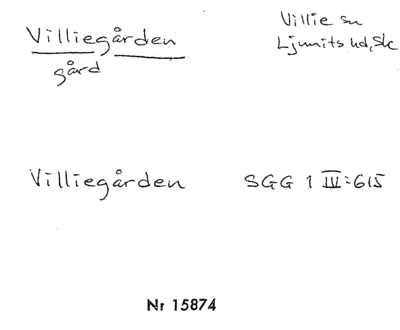 Villiegården
gård
Villie sn
Ljunits hd, Sk
Villiegården SGG 1 IV:615
Nr 15874